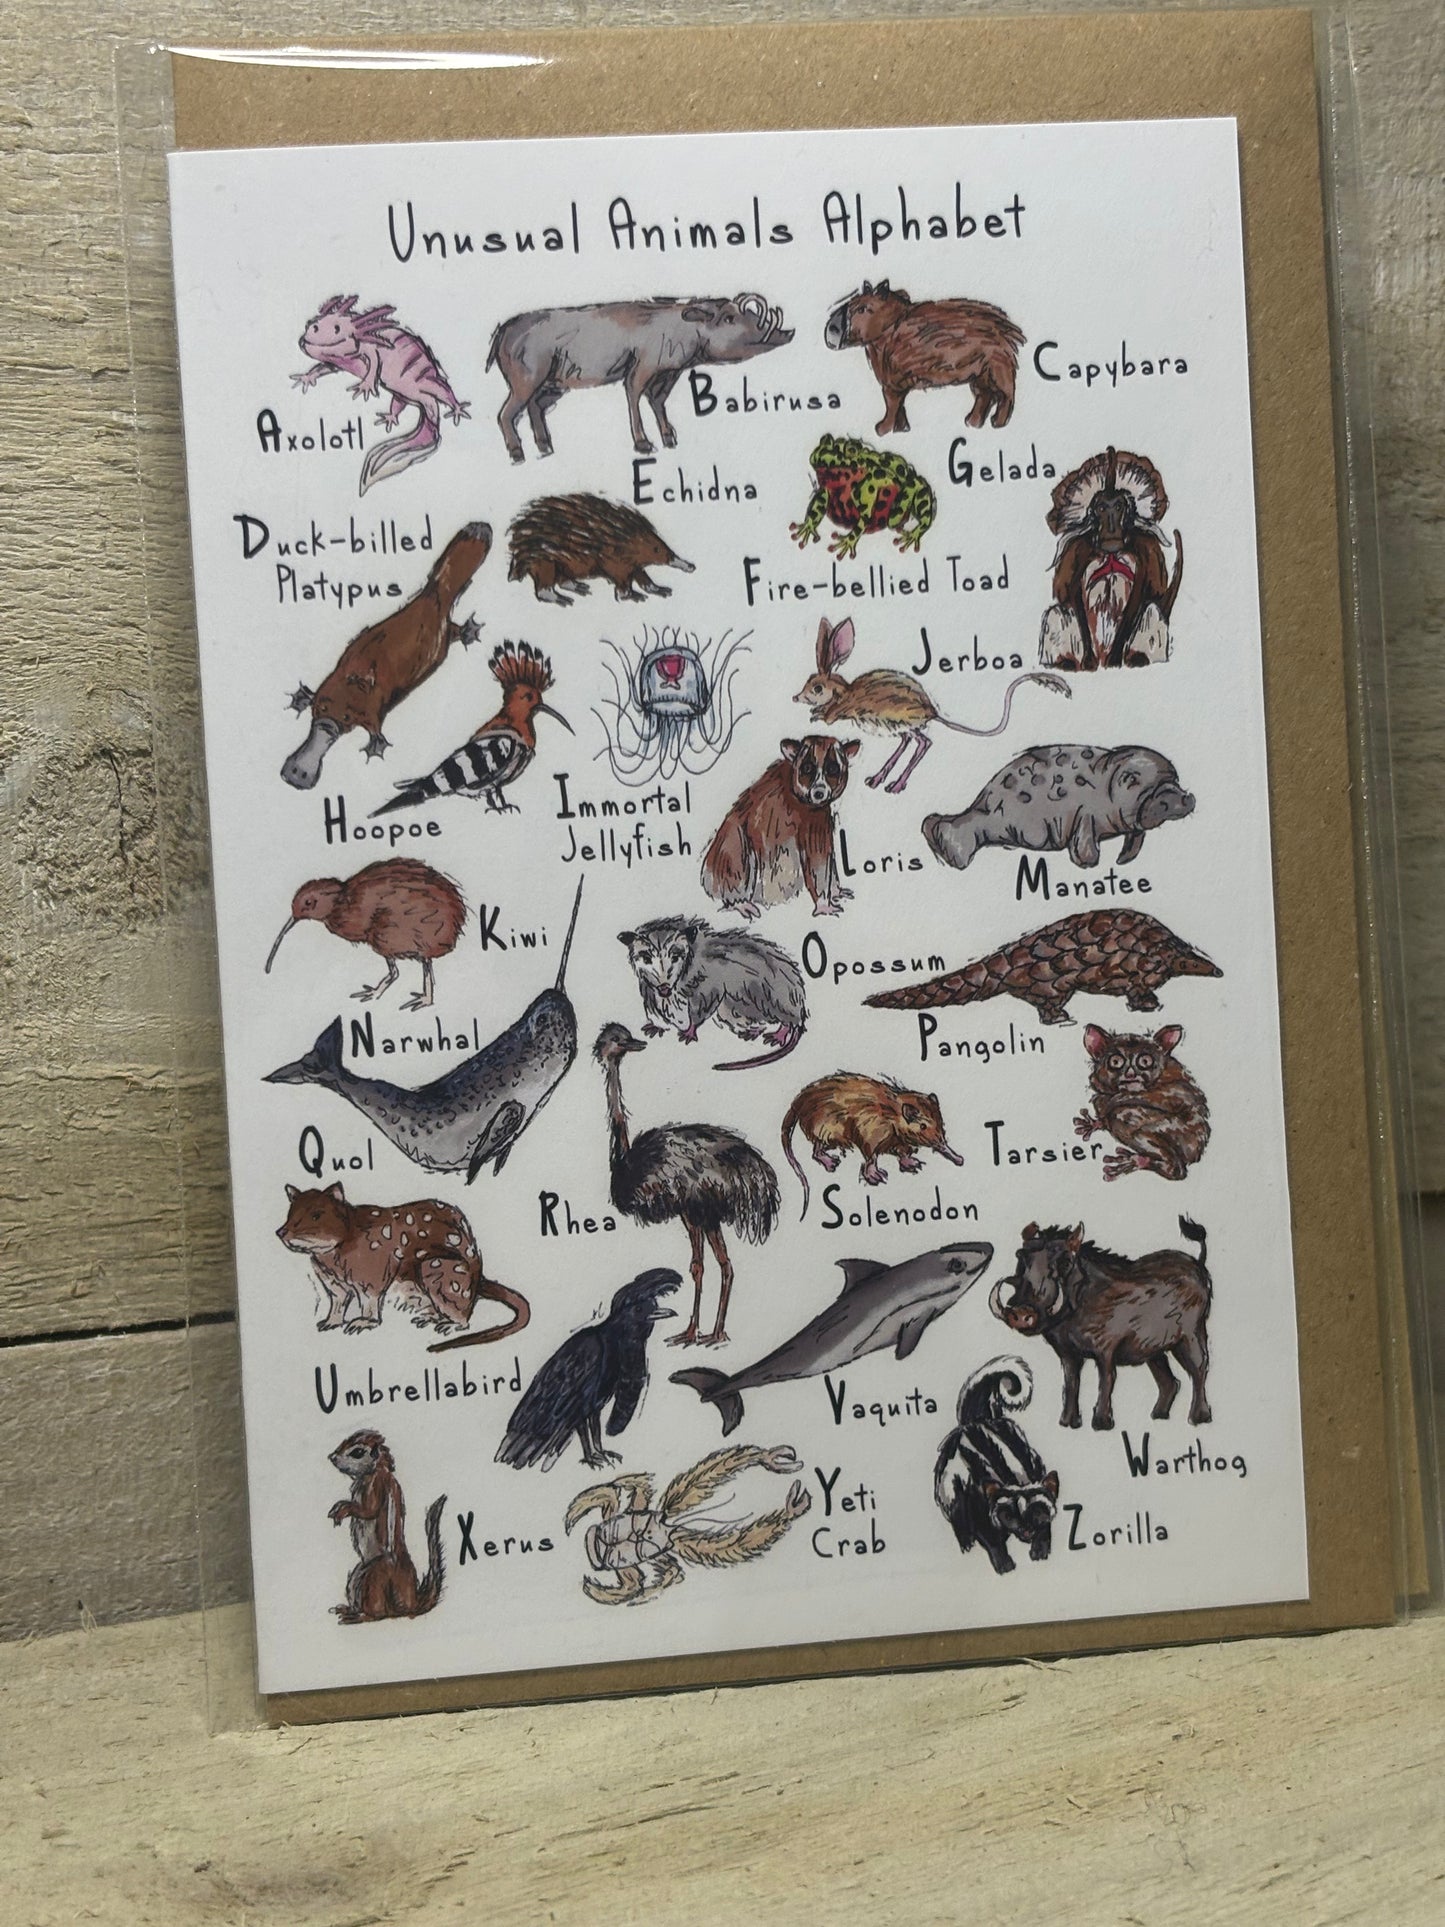 Unusual Animals Alphabet
Axolotl
Babirusa
Capybara
Duck-billed
Platypus
Echidna
Fire-bellied Toad
Gelada
Hoopoe
Immortal
Jellyfish
Jerboa
Kiwi
Loris
Manatee
Narwhal
Opossum
Pangolin
Quol
Rhea
Solenodon
Tarsier
Umbrellabird
Vaquita
Warthog
Xerus
Yeti
Crab
Zorilla